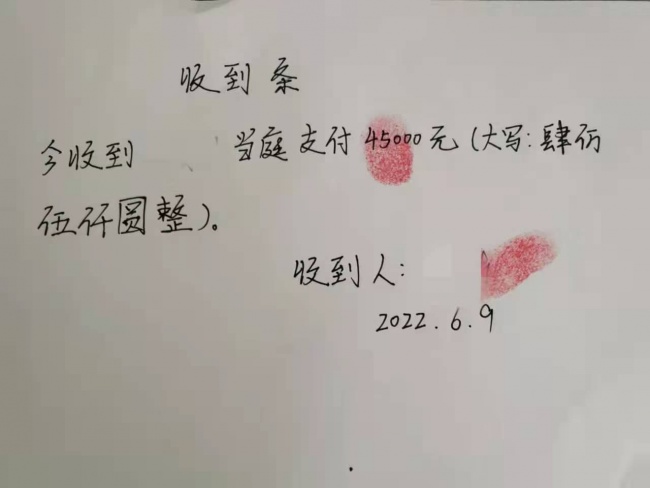 收到条
今收到 当庭支付45000元(大写:肆仴
伍仟圆整)。
收到人:
2022.6.9